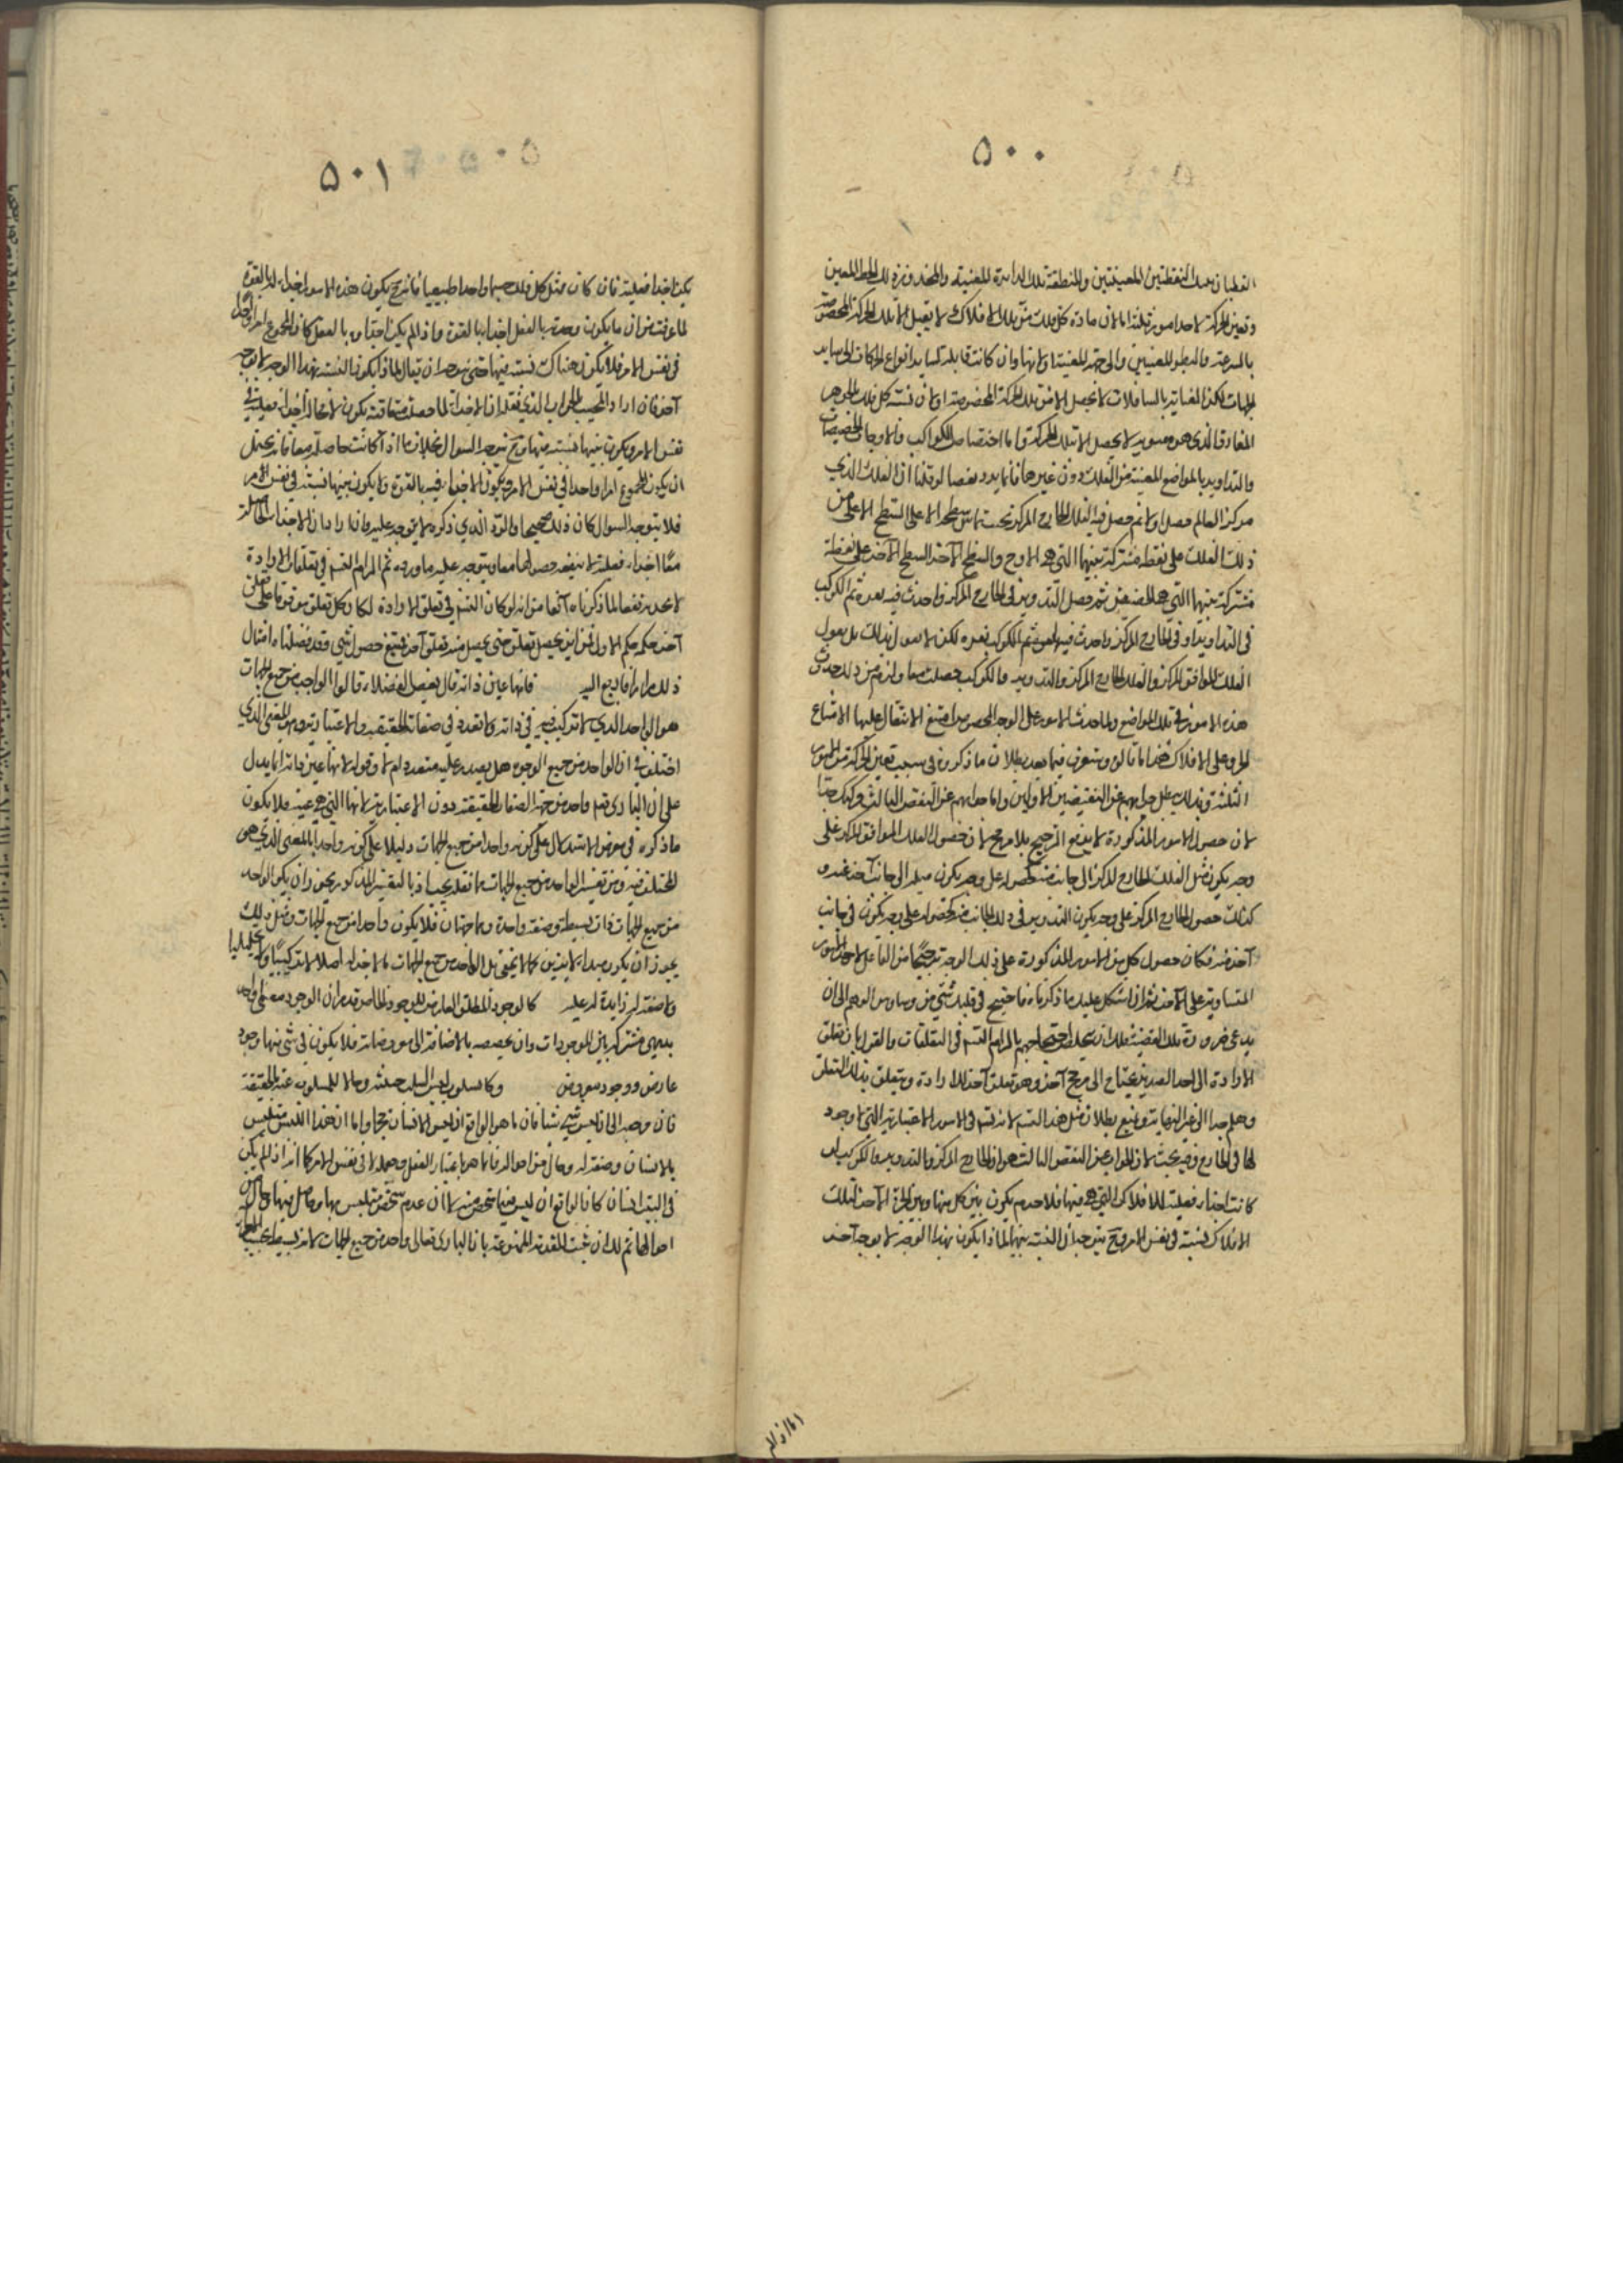 ٥٠٠
القطبان تينك النقطتين المعينتين والمنطقة تلك الدائرة المعينة والمحور ذلك الخط المعين
وتعين الحركة لاحد امور ثلثة اما لان مادة كل فلك من تلك الافلاك لا يقبل الا تلك الحركة المخصوصة
بالسرعة والبطو المعينين والى جهة المعينة
المفارق الذي هو لا يحصل الا بتلك الحركة واما اختصاص الكواكب والاوجات
والتداوير بالمواضع المعينة من الفلك دون غيرها فانما يرد نقضا لو قلنا ان الفلك الذي
مركزه مركز العالم حصل اولا ثم حصل فيه الفلك الخارج المركز بحيث يماس سطحه الاعلى السطح الاعلى من
ذلك الفلك على نقطة مشتركة بينهما التي هي الاوج والسطح الآخر السطح الآخر على نقطة
مشتركة بينهما التي هي الحضيض ثم حصل التدوير في الخارج المركز واحدث فيه نقرة ثم الكوكب
في التداوير او في الخارج المركز واحدث فيه الكوكب نقرة لكن لا نقول بذلك بل نقول
الفلك الموافق المركز والفلك الخارج المركز والتدوير والكوكب حصلت معا ولزم من ذلك حدوث
هذه الامور في تلك المواضع ولما حدث الامور على الوجه المخصوص امتنع الانتقال عليها لامتناع
الخرق على الافلاك هذا ما قالوه وستعرف فيما بعد بطلان ما ذكروه في سبب تعين الحركة من الامور
الثلثة وبذلك يبطل جوابهم عن النقضين الاولين واما جوابهم عن النقض الثالث
لان حصول الامور المذكورة لا يدفع الترجيح بلا مرجح لان حصول الفلك الموافق المركز على
وجه يكون مثل الفلك الخارج المركز الى جانب منه كحصوله على وجه يكون ميله الى جانب آخر غيره و
كذلك حصول الخارج المركز على وجه يكون التدوير في ذلك الجانب منه كحصوله على وجه يكون في جانب
آخر منه فكان حصول كل من الامور المذكورة على ذلك الوجه ترجيحا من الفاعل لاحد الامور
المتساوية على الآخر ثم ان اشكل عليك ما ذكرناه فاختلج في قلبك شيء من وساوس الوهم الى ان
يدعى ضرورة تلك القضية فلك ان بالتزام التسلسل في التعلقات والقول بان تعلق
الارادة الى احد الضدين يحتاج الى مرجح آخر وهو تعلق آخر للارادة ويتعلق بذلك التعلق
وهلم جرا الى غير النهاية ونمنع بطلان مثل هذا التسلسل لانه تسلسل في الامور الاعتبارية التي لا وجود
لها في الخارج وفيه بحث لان الجواب عن النقض الثالث هو ان الخارج المركز والتدوير والكوكب لو
كانت اجزاء فعلية للافلاك التي هي فيها فلا جرم يكون بين كل منها وبين الجزء الآخر لتلك
الافلاك نسبة في نفس الامر وح يتوجه ان النسبة بينهما لماذا يكون بهذا الوجه لا بوجه آخر
واما اذا لم
٥٠١
يكن اجزاء فعلية فان كان مثل كل فلك جسما واحدا طبيعيا فانه ح يكون هذه الامور اجزاء له بالقوة
لما عرفت من ان ما يكون وحدته بالفعل اجزاؤه بالقوة وما لم يكن اجزاؤه بالفعل كان المجموع امرا واحدا
في نفس الامر فلا يكون هناك نسبة بينها حتى يتوجه ان يقال لماذا يكون النسبة بهذا الوجه لا بوجه
آخر فان اراد المجيب الجواب الذي نقله ان الاجزاء لما حصلت متعاقبة يكون لا محالة اجزاء فعلية في
نفس الامر ويكون بينها نسبة وح يتوجه السوال بخلاف ما اذا كانت حاصلة معا فانه يحتمل
ان يكون المجموع امرا واحدا في نفس الامر ويكون الاجزاء فيه بالقوة ولا يكون بينها نسبة في نفس الامر
فلا يتوجه السوال كان ذلك صحيحا والرد الذي ذكره لا يتوجه عليه وان اراد ان الاجزاء الحاصلة
معا اجزاء فعلية لا ينفعه حصولها معا ويتوجه عليه ما ورده ثم التزام التسلسل في تعلقات الارادة
لا يجديه نفعا لما ذكرناه آنفا من انه لو كان التسلسل في تعلق الارادة لكان كل تعلق موقوفا على
آخر حكمه حكم الاول فمن اين يحصل تعلق حتى يحصل منه تعلق آخر فيمتنع حصول شيء وقد فصلنا امثال
ذلك مرارا فارجع اليه فانها عين ذاته قال بعض الفضلاء قالوا الواجب من جميع الجهات
هو الواحد الذي لا تركيب فيه في ذاته ولا تعدد في صفاته الحقيقية والاعتبارية وهو المعنى الذي
اختلف في ان الواحد من جميع الوجوه هل يصدر عنه متعدد ام لا وقوله لانها عين ذاته انما يدل
على ان الباري تعالى واحد من جهة الصفات الحقيقية دون الاعتبارية لانها التي هي عينه فلا يكون
ما ذكره في معرض الاستدلال على كونه واحدا من جميع الجهات دليلا على كونه واحدا بالمعنى الذي هو
المختلف فيه ومن تفسير الواحد من جميع الجهات بما نقله يجب اذ بالتفسير المذكور يجوز ان يكون الواحد
من جميع الجهات ذات بسيطة وصفة واحدة وهما جهتان فلا يكون واحدا من جميع الجهات ومثل ذلك
يجوز ان يكون مبدأ لاثنين كما لا يخفى بل الواحد من جميع الجهات ما لا جزء له اصلا لا تركيبيا ولا تحليليا
ولا صفة له زايدة له عليه كالوجود المطلق العارض للوجود الخاص قد مر ان الوجود معنى واحد
بديهي مشترك بين الموجودات وان تخصصه بالاضافة الى معروضاته فلا يكون في شيء منها وجود
عارض ووجود معروض وكالسلوب ليس السلب صفة وحالا للمسلوب عنه بالحقيقة
فان مرجعه الى ان ليس شيء شيئا فان ما هو الواقع ان ليس الانسان حجرا واما ان هذا الليس متلبس
بالانسان وصفة له وحال من احواله فانما هو باعتبار العقل وعمله لا في نفس الامر كما انه اذا لم يكن
في البيت انسان كان الواقع ان ليس فيها شخص منه لا ان عدم شخص متلبس بها وحاصل فيها وحال من
احوالها ثم لك ان تثبت المقدمة الممنوعة بان الباري تعالى واحد من جميع الجهات لانه بسيط بحسب الخارج